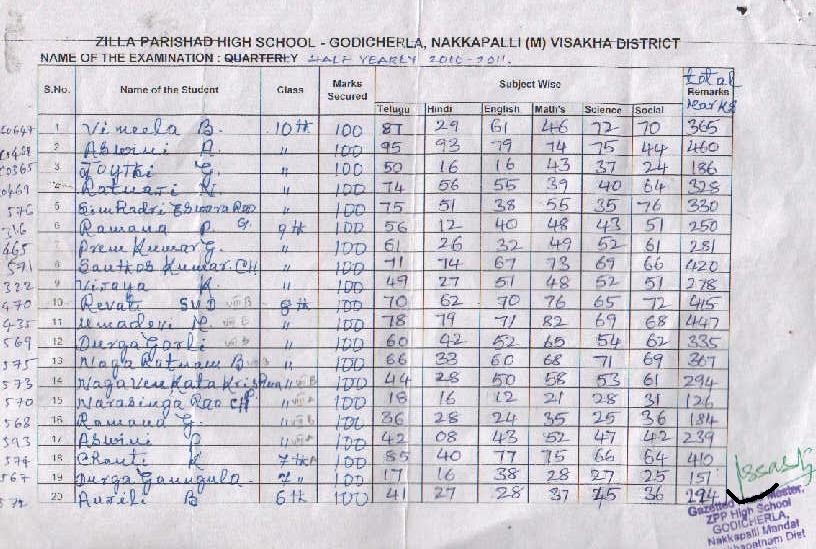 ZILLA PARISHAD HIGH SCHOOL - GODICHERLA, NAKKAPALLI (M) VISAKHA DISTRICT
NAME OF THE EXAMINATION : QUARTERLY HALF YEARLY 2010-2011.
S.No. Name of the Student Class Marks Secured Subject Wise total Remarks Marks
Telugu Hindi English Math's Science Social
1 Vimeela B. 10th 100 87 29 61 46 72 70 365
2 Aswini P. " 100 95 93 79 74 75 44 460
0365 3 Joythi G. " 100 50 16 16 43 37 24 186
0469 4 Ratnari K. " 100 74 56 55 39 40 64 328
576 5 Simhadri Eswara Rao " 100 75 51 38 55 35 76 330
316 6 Ramana P. G. 9th 100 56 12 40 48 43 51 250
465 7 Prem Kumar G. " 100 61 26 32 49 52 61 281
591 8 Santhos Kumar. CH " 100 71 74 67 73 69 66 420
322 9 Vijaya K. " 100 49 27 51 48 52 51 278
470 10 Revati SVD VIII B 8th 100 70 62 70 76 65 72 415
435 11 Umadevi M. VIII B " 100 78 79 71 82 69 68 447
569 12 Durga Gorli VIII B " 100 60 42 52 65 54 62 335
575 13 Naga Ratnam B VIII B " 100 66 33 60 68 71 69 367
573 14 Naga Venkata Krishna " VIII B 100 44 28 50 58 53 61 294
570 15 Narasinga Rao CH " VIII A 100 18 16 12 21 28 31 126
568 16 Ramana G. " 100 36 28 24 35 25 36 184
593 17 Aswini P " VIII A 100 42 08 43 52 47 42 239
574 18 Chanti K 7th A 100 85 40 77 75 66 64 410
567 19 Durga Ganngula 7 " 100 17 16 38 28 27 25 151
572 20 B 6th 100 41 27 28 37 45 36
Gazetted
ZPP High School
GODICHERLA,
Nakkapalli Mandal
Dist